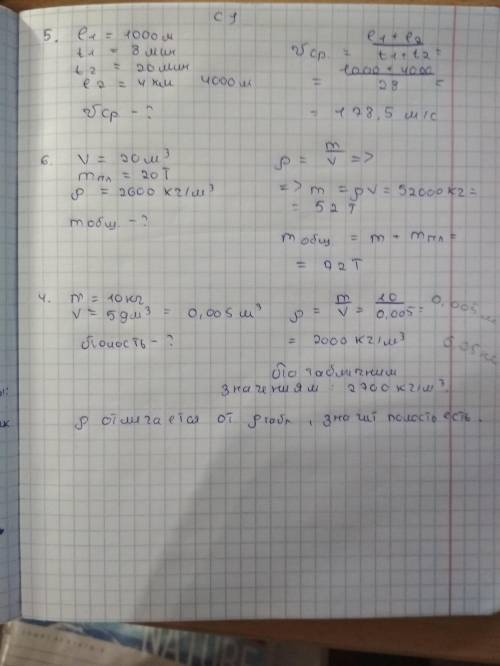 С1
5. l1 = 1000 м
t1 = 8 мин
t2 = 20 мин
l2 = 4 км 4000 м
vср - ?
vср. = l1 + l2 / t1 + t2 =
= 1000 + 4000 / 28 =
= 178,5 м/с
6. V = 20 м³
mпл = 20 т
ρ = 2600 кг/м³
mобщ. - ?
ρ = m/V =>
=> m = ρV = 52000 кг =
= 52 т
mобщ. = m + mпл =
= 72 т
4. m = 10 кг
V = 5 дм³ = 0,005 м³
Полость - ?
ρ = m/V = 10/0,005 =
= 2000 кг/м³
0,005 м
По табличним
значениям: 2700 кг/м³.
ρ отличается от ρтабл, значит полость есть.
NATURE